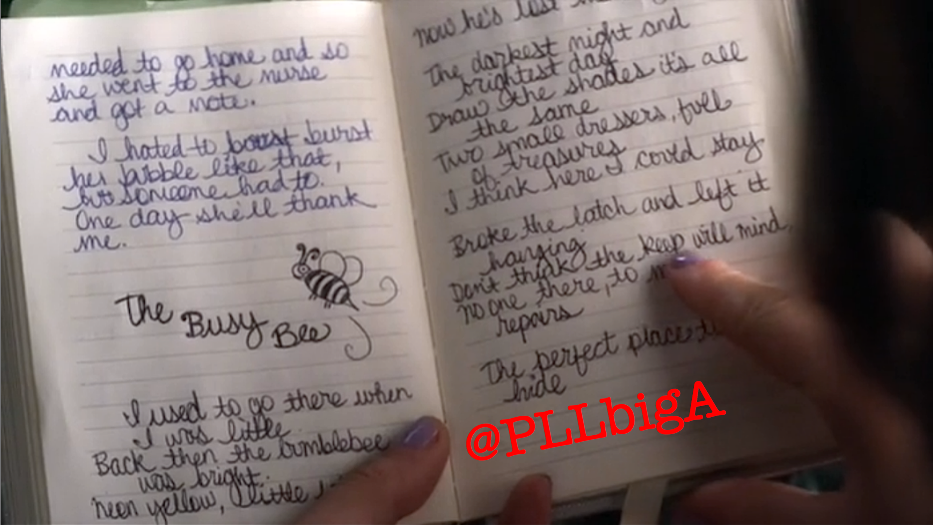 needed to go home and so
she went to the nurse
and got a note.
I hated to boost burst
her bubble like that,
but someone had to.
One day she'll thank
me.
The Busy Bee
I used to go there when
I was little
Back then the bumblebee
was bright.
neon yellow, little
now he's lost
The darkest night and
brightest day
Draw the shades it's all
the same
Two small dressers, full
of treasures
I think here I could stay
Broke the latch and left it
hanging
Don't think the keep will mind.
no one there, to
repairs
The perfect place
hide
@PLLbigA